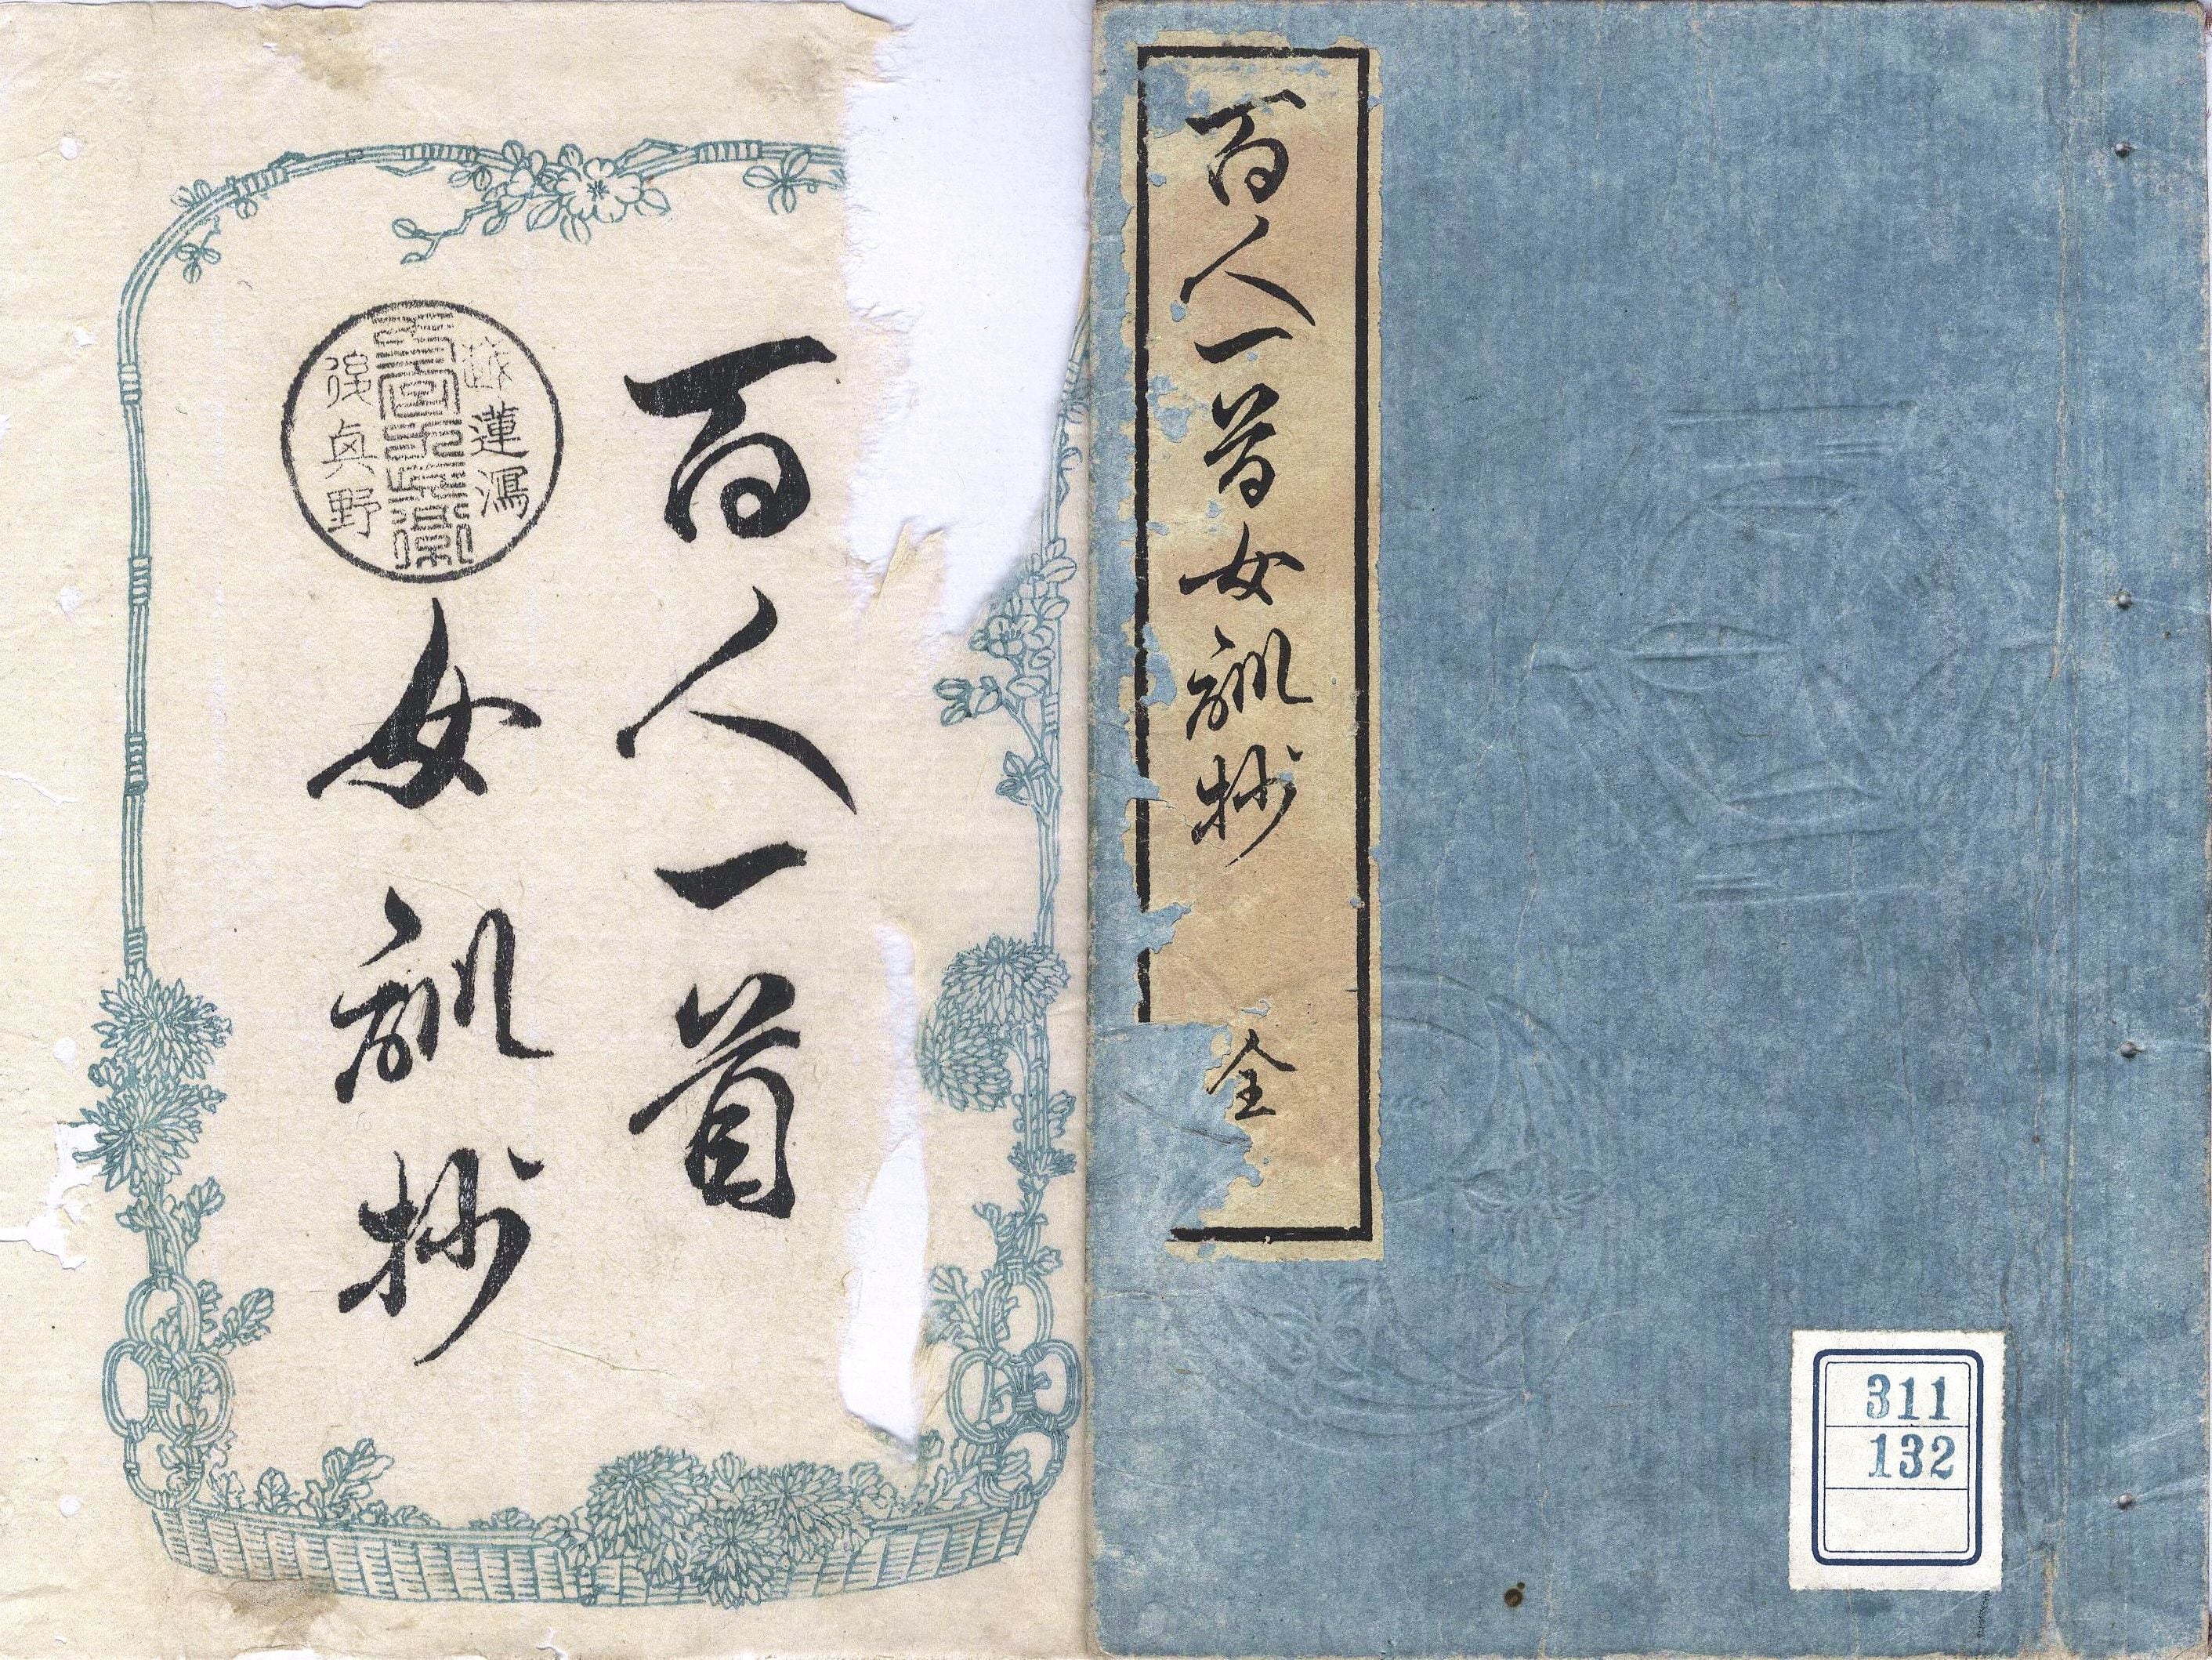 百人一首女訓抄
全
311
132
百人一首
女訓抄
越
後
蓮潟
真野